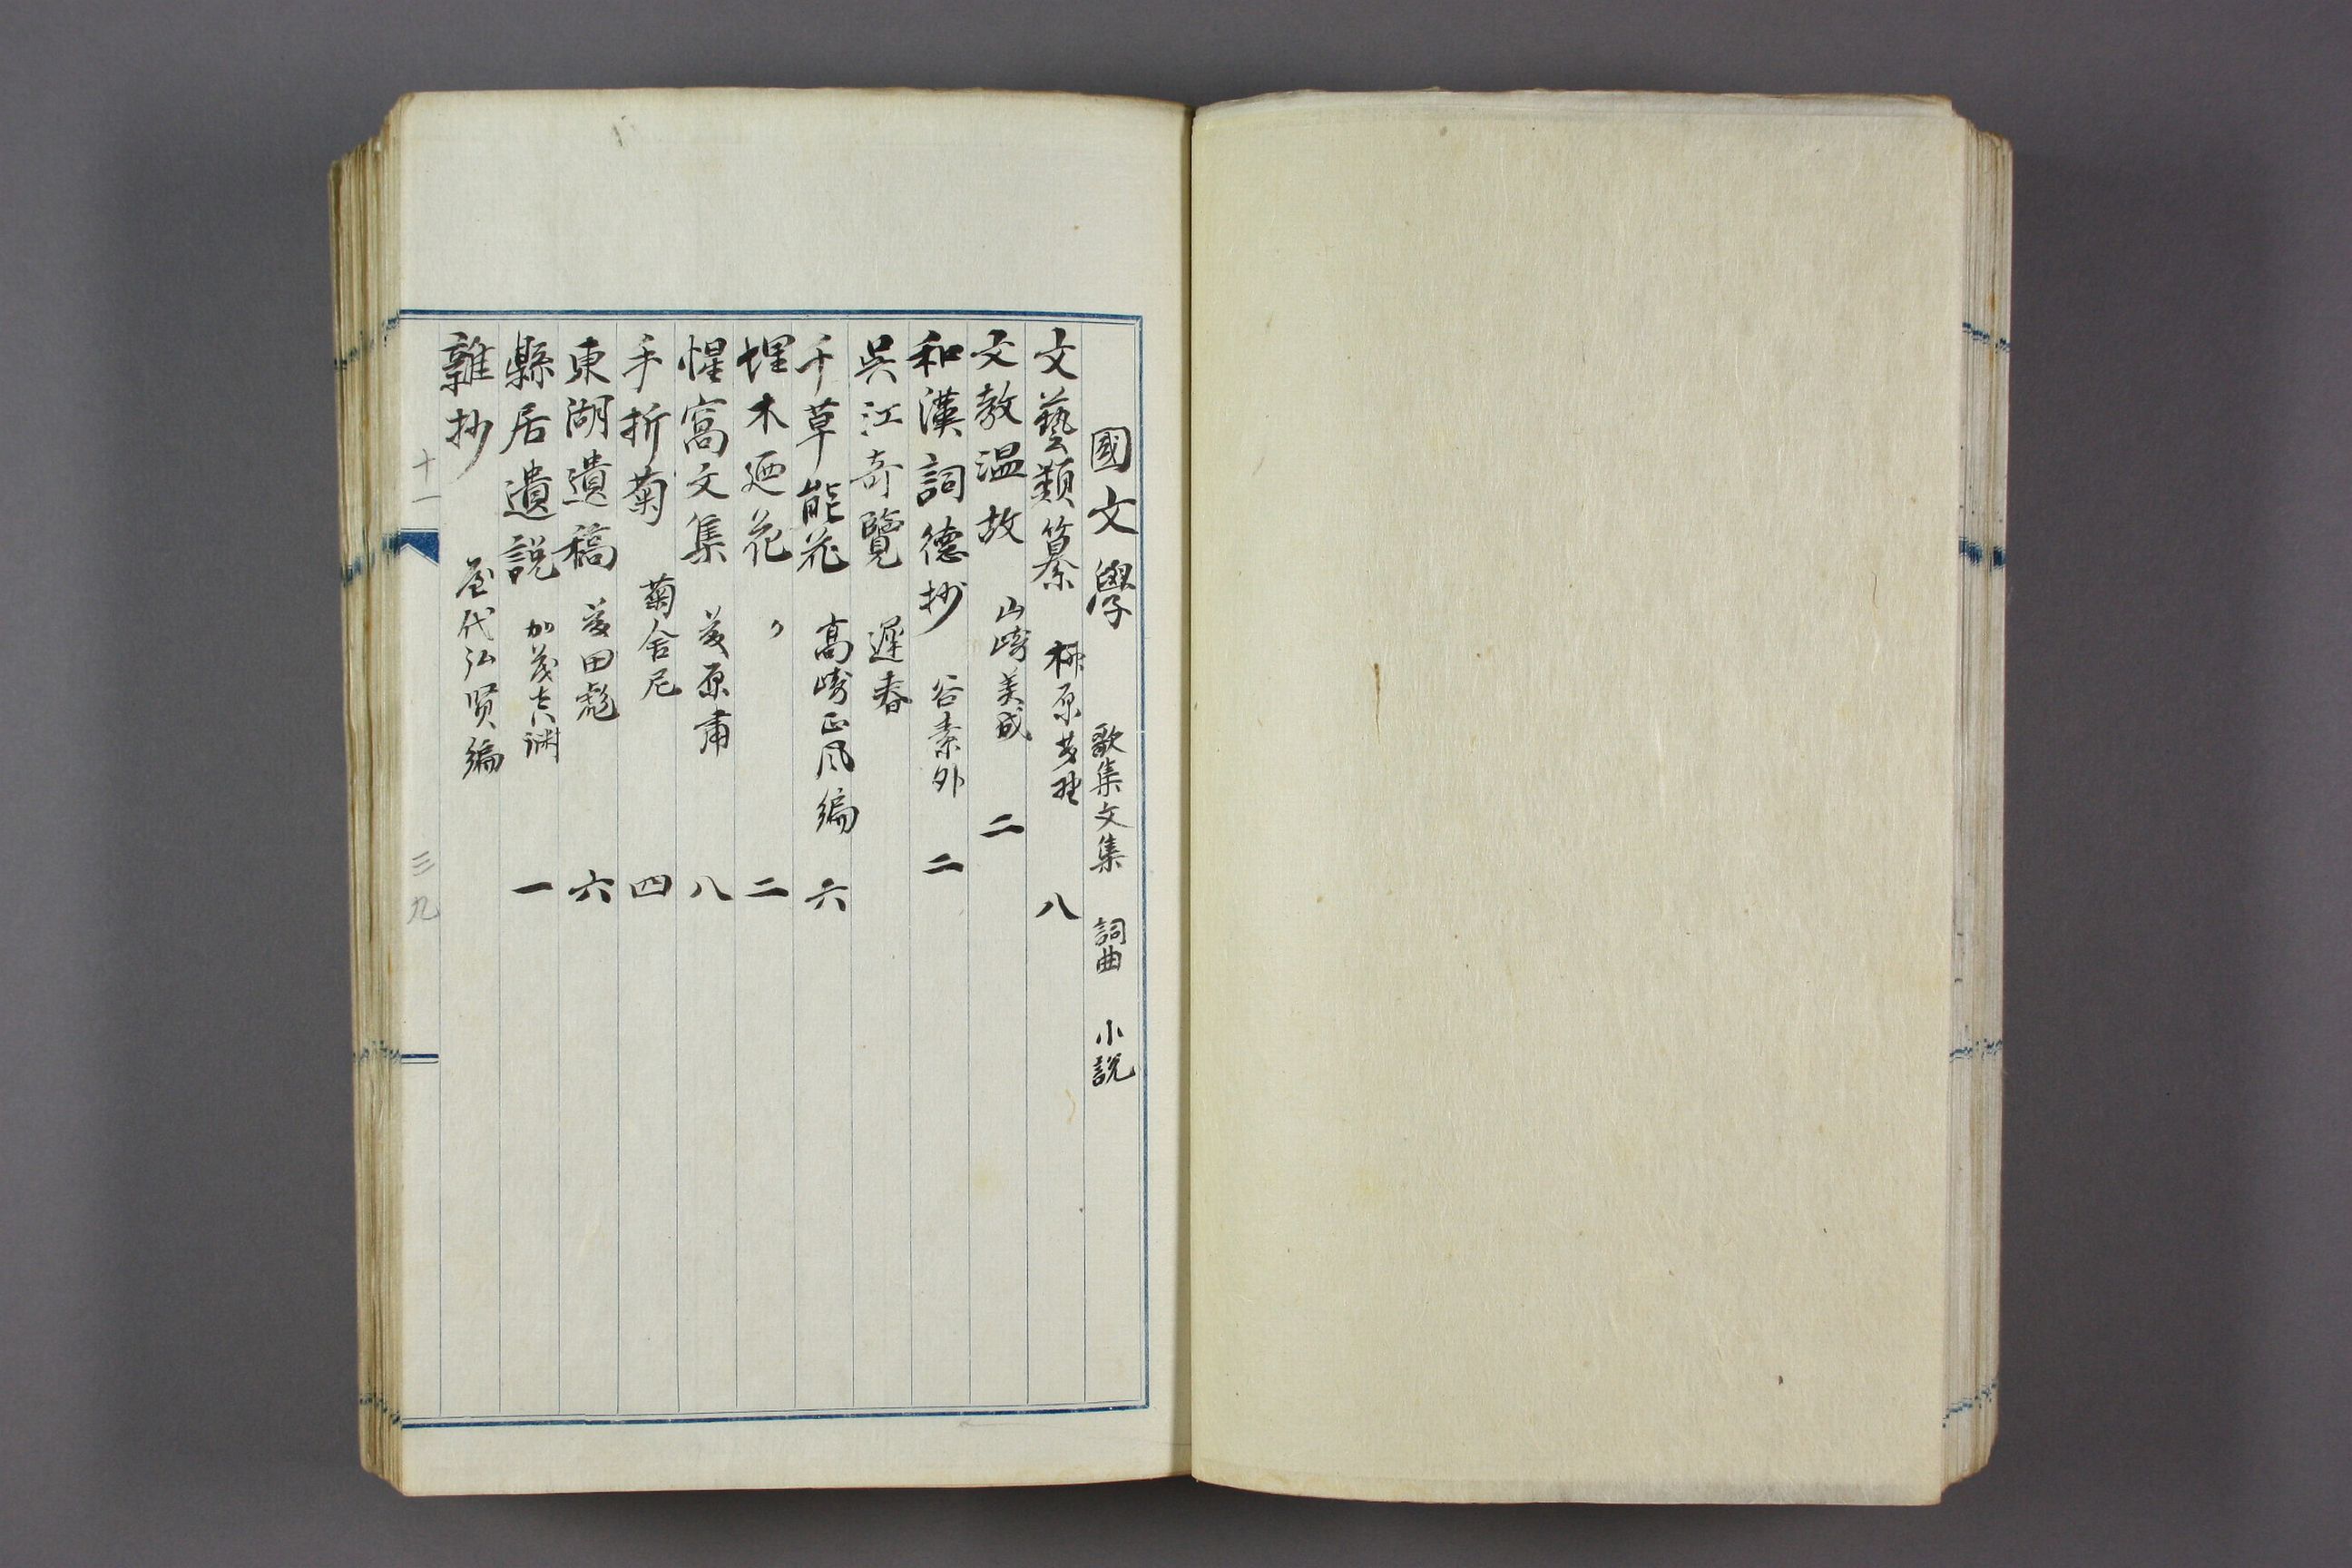 國文學 歌集文集 詞曲 小説
文藝類纂 榊原芳埜 八
文教温故 山崎美成 二
和漢詞德抄 谷素外 二
吳江奇覽 遲春
千草能花 髙崎正风編 六
埋木廼花 〃 二
惺窩文集 藤原肅 八
手折菊 菊舍尼 四
東湖遺稿 藤田彪 六
縣居遺説 加茂真渊 一
雜抄 屋代弘贤編
十一 三九